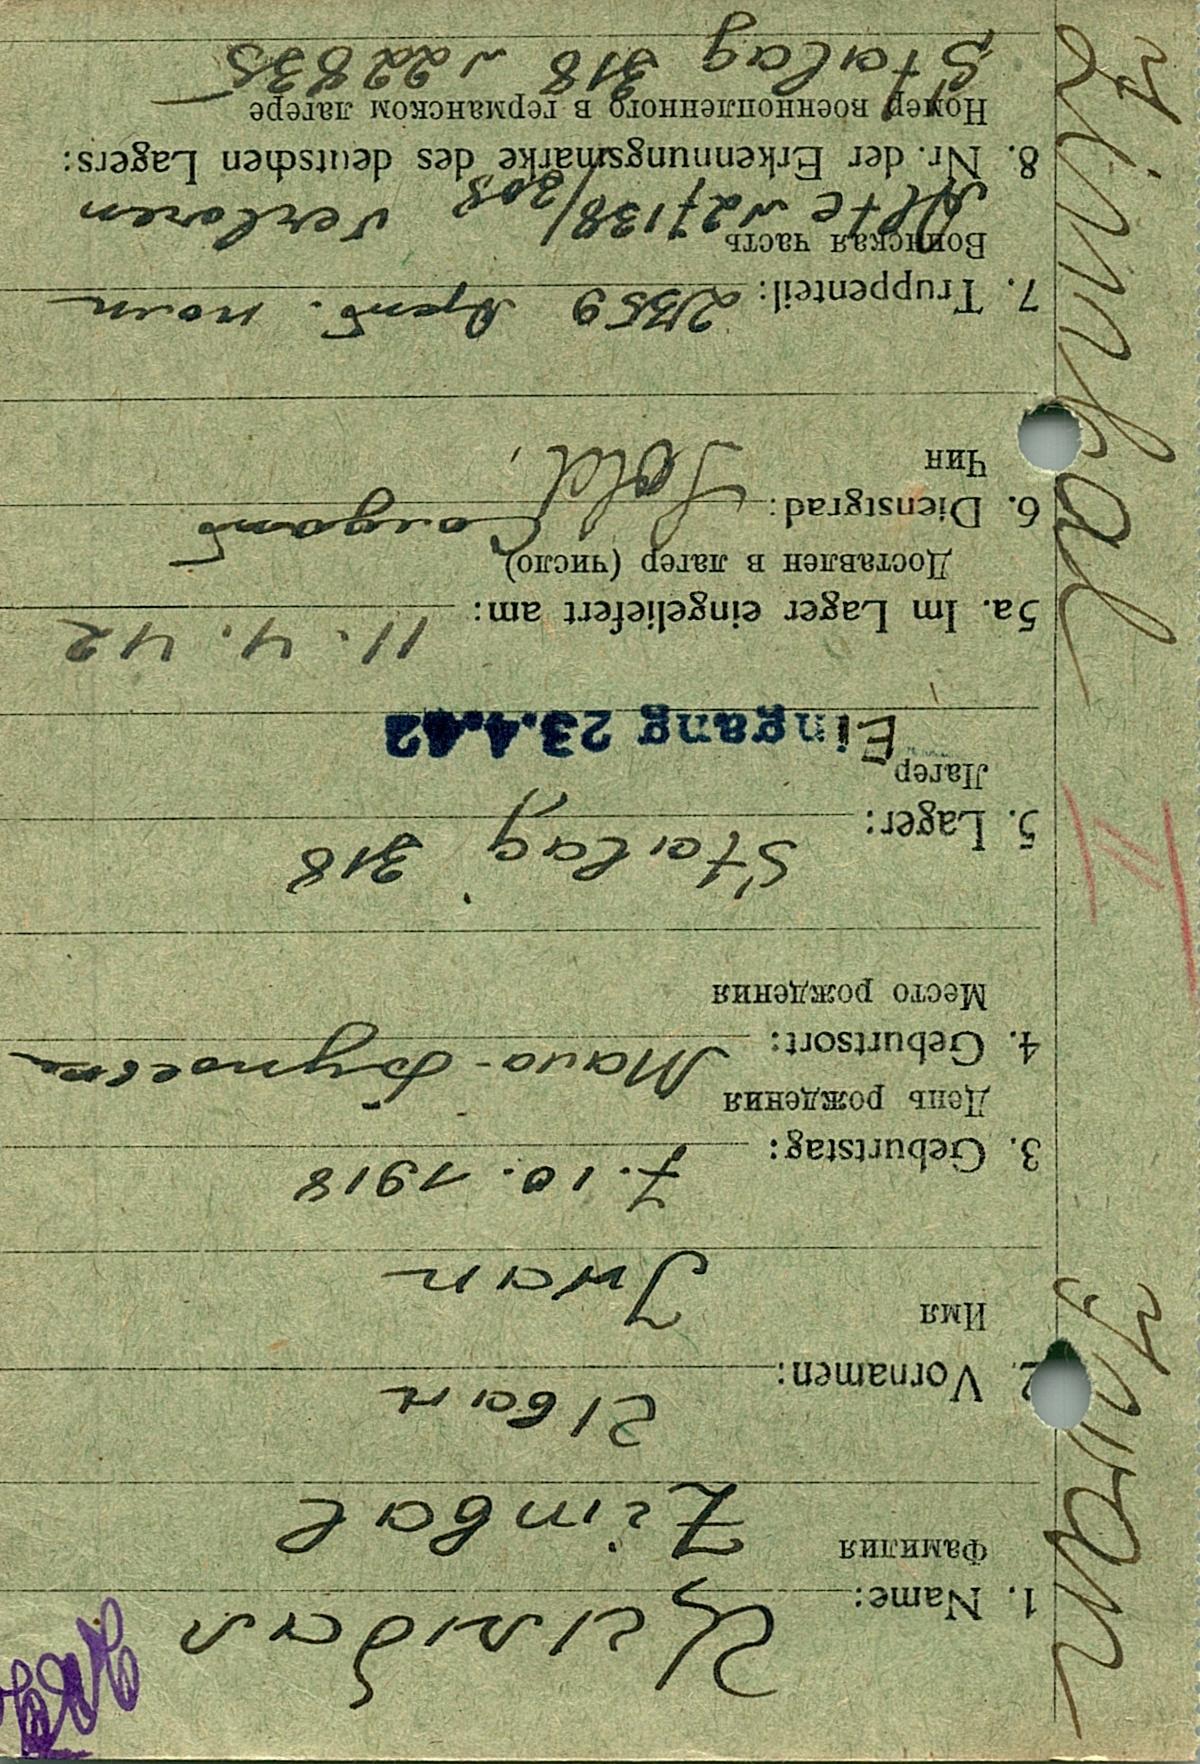 1. Name: Цимбал
Фамилия
Zimbal
Иван
2. Vornamen:
Имя
Iwan
3. Geburtstag: 7.10.1918
День рождения
4. Geburtsort:
Место рождения
5. Lager: Stalag 318
Лагерь
Eingang 23.4.42
5a. Im Lager eingeliefert am: 11.4.42
Доставлен в лагерь (число)
6. Dienstgrad: Солдат
Чин
Sold.
7. Truppenteil:
Воинская часть
Alte № 27138/308 verloren
8. Nr. der Erkennungsmarke des deutschen Lagers:
Номер военнопленного в германском лагере
Stalag 318 № 22835
Zimbal Iwan
II